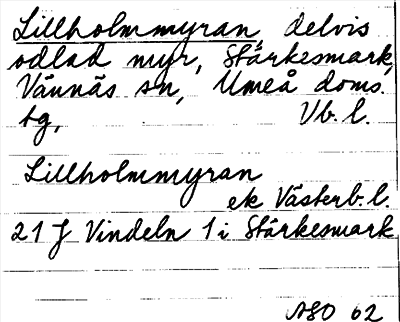 Lillholmmyran delvis
odlad myr, Stärkesmark,
Vännäs sn, Umeå doms.
tg, Vb. l.
Lillholmmyran
ek Västerb. l.
21 J Vindeln 1 i Stärkesmark
ASO 62